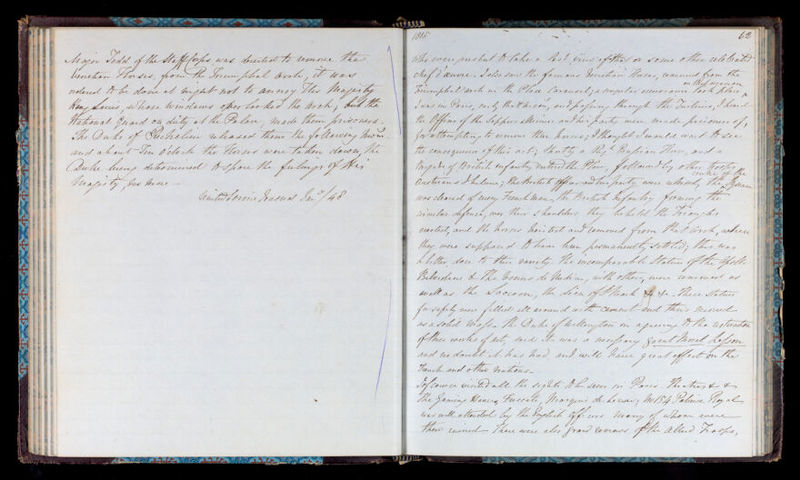 Major Todd of the Staff Corps was directed to remove the
Venetian Horses, from the Triumphal Arch, it was
ordered to be done at night not to annoy His Majesty
King Louis, whose windows overlooked the Arch, but the
National Guard on duty at the Palace made them prisoners.
The Duke of Richelieu released them the following morn
and about Ten O'clock the Horses were taken down, the
Duke being determined to spare the feelings of His
Majesty no more —
United Service Journal Jany/48
1815
63
who were present to take a last view of this or some other celebrated
chef d'œuvre. I also saw the famous Venetian Horses, removed from the
Triumphal arch in the Place Carousel;
took place on that occasion
I was in Paris, and passing through the Tuileries, I heard
the Officer of the Sappers & Miners and his party were made prisoners of,
for attempting to remove the horses; I thought I would wait to see
the consequences of this act; shortly a Regt Prussian Horse, and a
brigade of British infantry entered the Place, followed by other troops
Austrians I believe; the British Officer and his party were released, the
was cleared of every Frenchman, the British Infantry forming the
circular defence, over their shoulders they beheld the triangles
erected, and the horses hoisted and removed from that Arch, where
they were supposed to have been permanently settled; this was
a bitter dose to their vanity the incomparable statues of the Apollo
Belvedere & the Venus de Medicis, with others, were removed as
well as the Laocoon, the Lion of St Mark &c &c. these statues
for safety were filled all around with cement and thus secured
as a solid mass. The Duke of Wellington in agreeing to the restoration
of these works of art, said it was a necessary great Moral Lesson
and no doubt it has had and will have great effect on the
French and other Nations.
I of course visited all the sights to be seen in Paris Theatres & &
the Gaming Houses, Frascati, Marquis de Livry, No 154 Palais Royal
was well attended by the English Officers many of whom were
there ruined. There were also grand reviews of the Allied Troops,